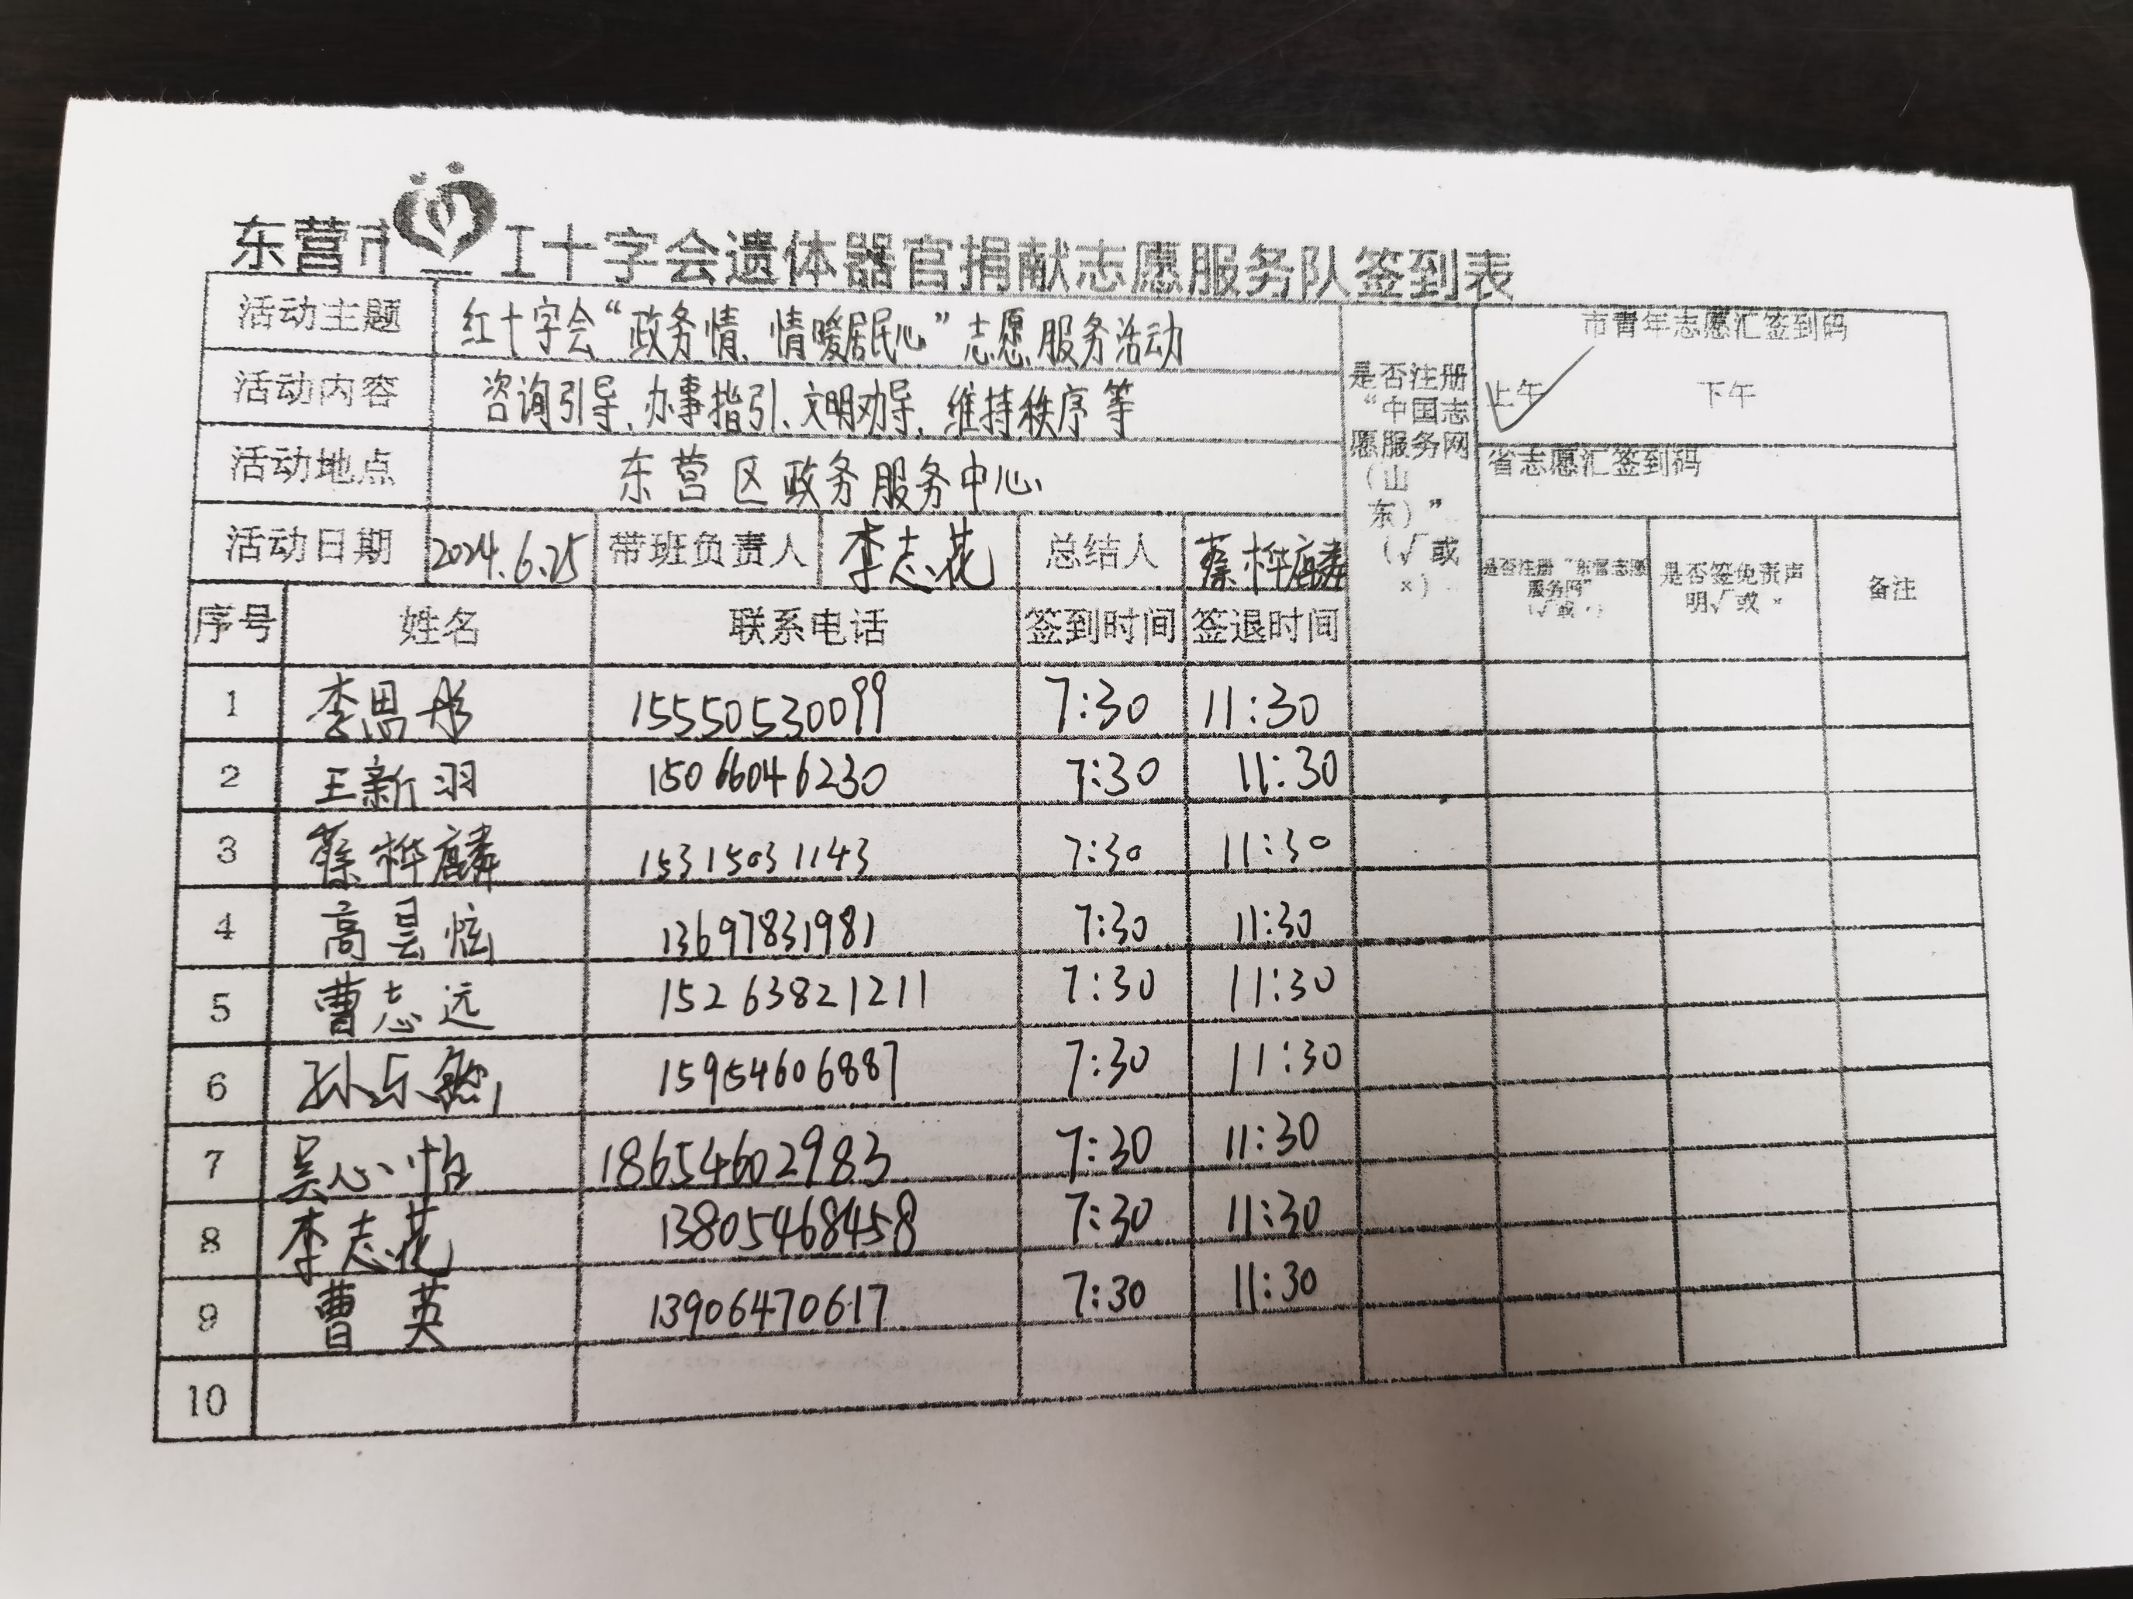 东营市红十字会遗体器官捐献志愿服务队签到表
活动主题 红十字会“政务情、情暖居民心”志愿服务活动
活动内容 咨询引导、办事指引、文明劝导、维持秩序等
活动地点 东营区政务服务中心
活动日期 2024.6.25 带班负责人 李志花 总结人 蔡桦麟
是否注册“中国志愿服务网（山东）”（√或×）
市青年志愿汇签到码
上午 √ 下午
省志愿汇签到码
是否注册“东营志愿服务网”（√或×） 是否签免责声明√或× 备注
序号 姓名 联系电话 签到时间 签退时间
1 李思彤 15550530099 7:30 11:30
2 王新羽 15066046230 7:30 11:30
3 蔡桦麟 15315031143 7:30 11:30
4 高昙炫 13697831981 7:30 11:30
5 曹志远 15263821211 7:30 11:30
6 孙乐 15954606887 7:30 11:30
7 吴心怡 18654602983 7:30 11:30
8 李志花 13805468458 7:30 11:30
9 曹英 13906470617 7:30 11:30
10